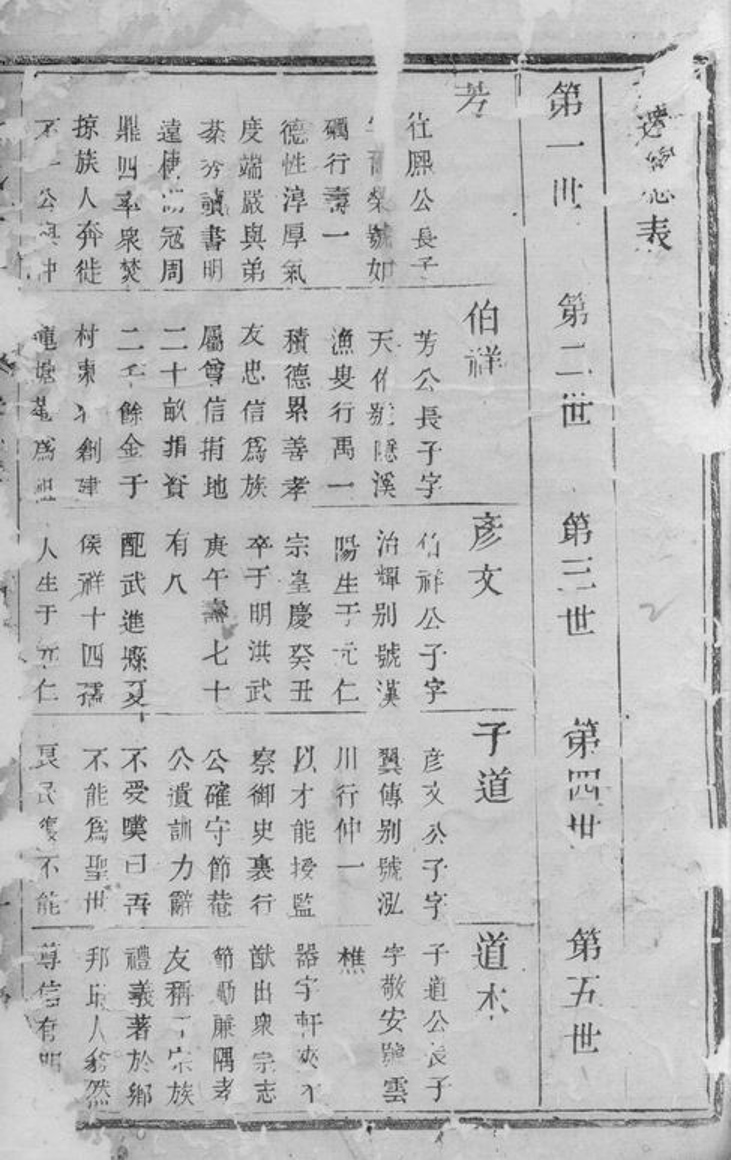 表
第一世
第二世
第三世
第四世
第五世
芳
往熈公長子
榮號如
礀行壽一
德性淳厚氣
度端嚴與弟
棻芳讀書明
遠使冠周
鼎四率衆焚
掠族人奔徙
不一公與仲
伯祥
芳公長子字
天佑號隱溪
漁叟行禹一
積德累善孝
友忠信爲族
屬尊信捐地
二十畝捐資
二千餘金于
村東創建
菴爲
彥文
伯祥公子字
治輝别號漢
陽生于元仁
宗皇慶癸丑
卒于明洪武
庚午壽七十
有八
配武進縣夏
侯祥十四孺
人生于元仁
子道
彥文公子字
翼傳别號泓
川行仲一
以才能授監
察御史裏行
公確守節菴
公遺訓力辭
不受嘆曰吾
不能爲聖世
良民隻不能
道本
子道公長子
字敬安號雲
樵
器宇軒爽才
猷出衆宗志
節勵廉隅孝
友稱于宗族
禮義著於鄉
邦人翕然
尊信有如